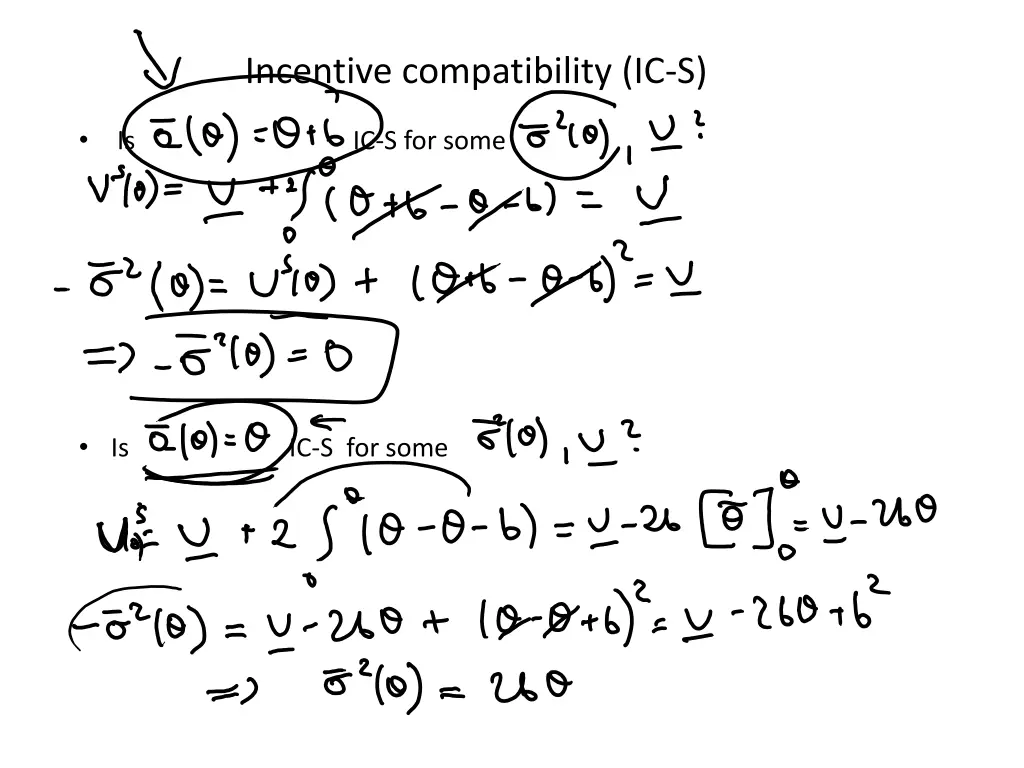 Incentive compatibility (IC-S)
• Is ā(θ) = θ+b IC-S for some σ̄²(θ), U̲ ?
Uˢ(θ) = U̲ + 2∫₀^θ (θ+b-θ-b) = U̲
- σ̄²(θ) = Uˢ(θ) + (θ+b-θ-b)² = U̲
=> -σ̄²(θ) = 0
• Is ā(θ) = θ IC-S for some σ̄²(θ), U̲ ?
Uˢ = U̲ + 2∫₀^θ (θ-θ-b) = U̲ - 2b [θ̃]₀^θ = U̲ - 2bθ
-σ̄²(θ) = U̲ - 2bθ + (θ-θ+b)² = U̲ - 2bθ + b²
=> σ̄²(θ) = 2bθ